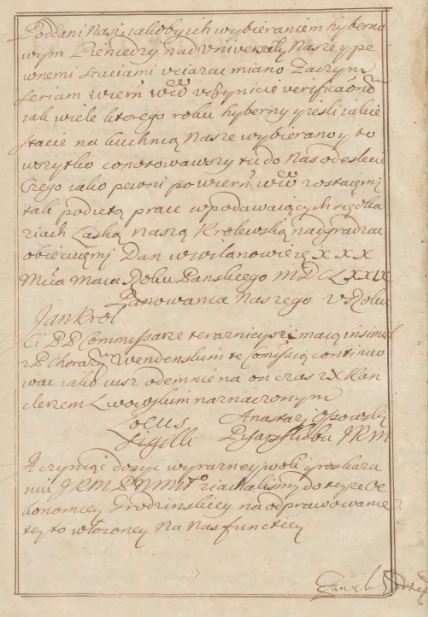 Poddani Nasi jakoby ich wybieraniem hyberno
wym Pieniędzy nad Vniversały Nasze y pe
wnemi staciami vciązac miano Zaczym
wiern ww vczynicie
jak wiele ktorego roku hyberny y jeśli jakie
stacie na kuchnią Nasze wybierano y to
wszytko conotowawszy tu do Nas odeslecie
Czego jako pewni po wiern ww zostaięmy
tak podiętą prace w podawaiących się oka
ziach Łaską naszą Krolewską nadgradzac
obiecuięmy Dan w Wilanowie XXX
Mca Maia Roku Panskiego MDCLXXIX
Panowania Naszego V Roku
Jan Krol
Ci PP Commissarze terazniejszi maią insimul
z P Chorązym Wendenskim te Comissią continuo
wac jako jusz odemnie na on czas z X Kan
clerzem Lwowskim naznaczonym
Locus Anastazy
Sigilli Pisarz JKM
A czyniąc dosyc wyrazney woli y roskaza
niu JKM PNM ziachalismy do teyze Oe
konomiey Grodzinskiey na odprawowanie
tey to włozoney na Nas functiey